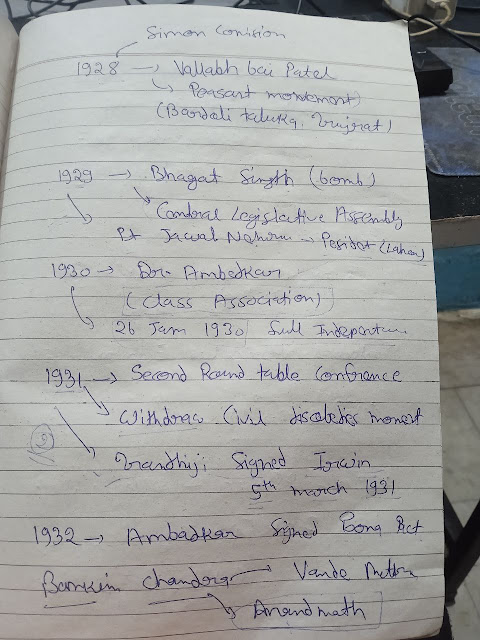 Simon Conision
1928 → Vallabh bai Patel
↳ Peasant movement)
(Bardali taluka, Gujrat)
1929 → Bhagat Singth (bomb)
↘ Centeral Legislative Assembly
↘ Pt Jawal Nehru → Pesidet (Lahor)
1930 → Dr. Ambedkar
(Class Association)
↳ 26 Jan 1930 full Indepentence
1931 → Second Round table Confrence
↘ Withdraw Civil disobedies moment
↘ Gandhiji Signed Irwin
5th march 1931
1932 → Ambadkar Signed Pona Pact
Bankim Chandra → Vande
↘ Anandmath